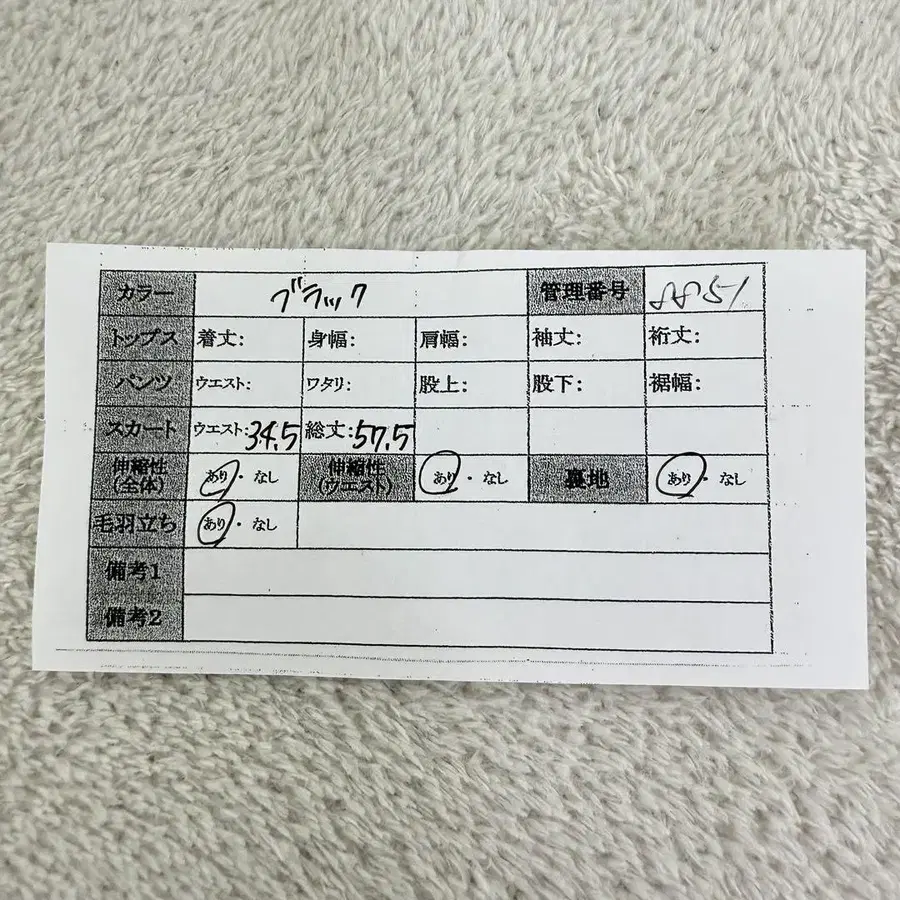 カラー ブラック 管理番号 8851
トップス 着丈: 身幅: 肩幅: 袖丈: 裄丈:
パンツ ウエスト: ワタリ: 股上: 股下: 裾幅:
スカート ウエスト:34.5 総丈:57.5
伸縮性(全体) あり・なし 伸縮性(ウエスト) あり・なし 裏地 あり・なし
毛羽立ち あり・なし
備考1
備考2